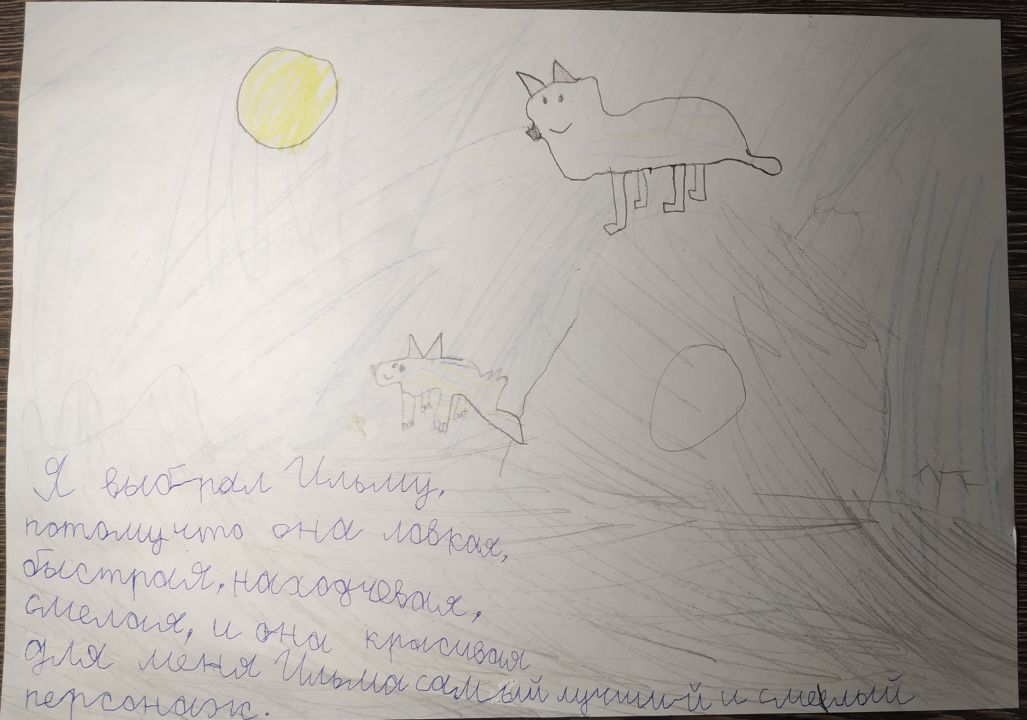 Я выбрал Ильму,
потомучто она ловкая,
быстрая, находчевая,
смелая, и она красивая
для меня Ильма самый лучший и смелый
персонаж.